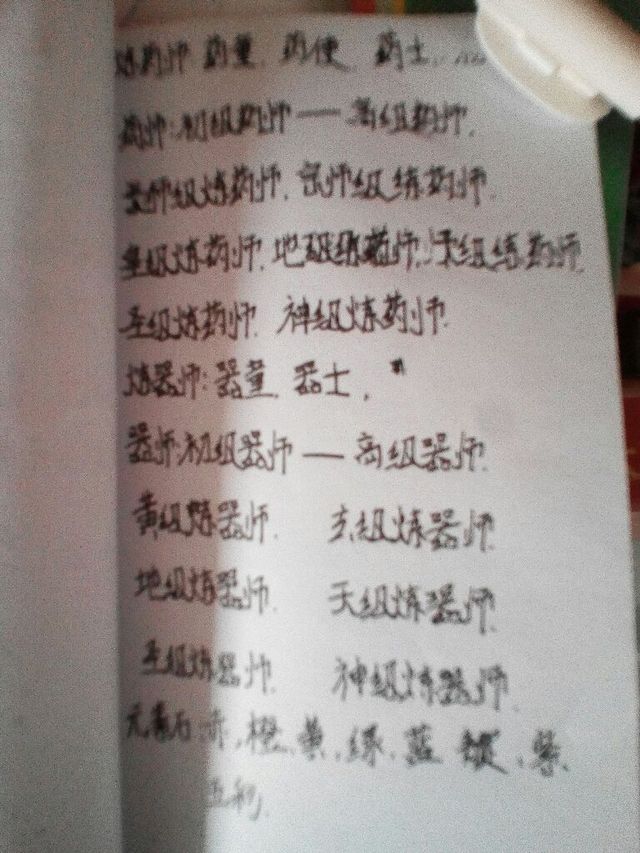 炼药师 药童、药使、药士、……
药师:初级药师——高级药师.
大师级炼药师、宗师级炼药师.
级炼药师、地级炼药师、天级炼药师.
圣级炼药师、神级炼药师.
炼器师:器童、器士、
器师:初级器师——高级器师.
黄级炼器师. 玄级炼器师.
地级炼器师. 天级炼器师.
圣级炼器师. 神级炼器师.
元素石 赤、橙、黄、绿、蓝 靛、紫、